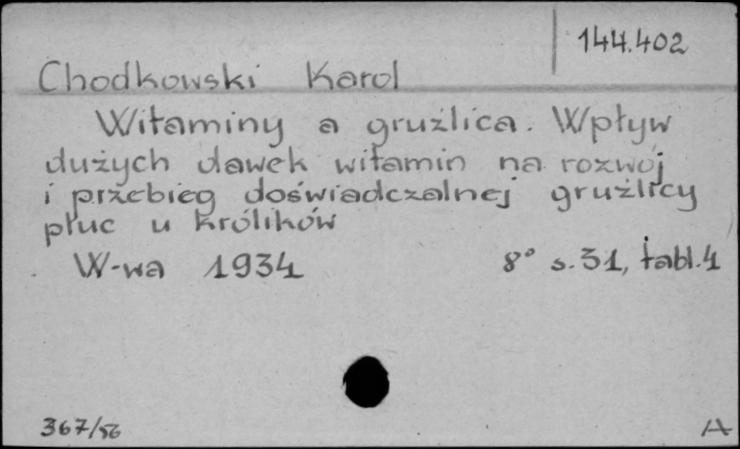 144.402
Chodkowski Karol
Witaminy a gruźlica. Wpływ
dużych dawek witamin na rozwój
i przebieg doświadczalnej gruźlicy
płuc u królików
W-wa 1934 8° s. 31, tabl. 4
367/56 A